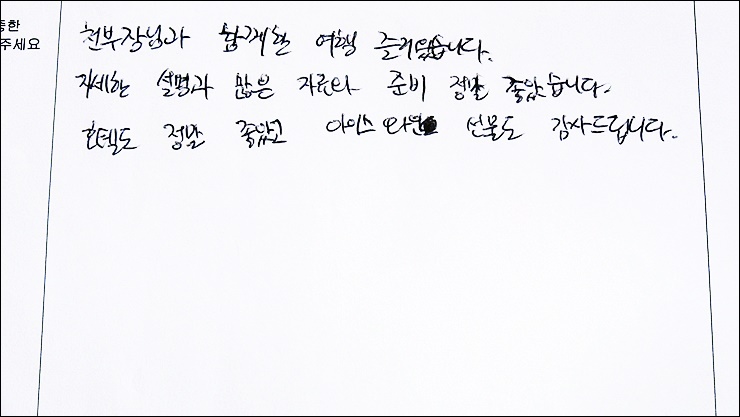 중한
주세요
천부장님과 함께한 여행 즐거웠습니다.
자세한 설명과 많은 자료와 준비 정말 좋았습니다.
호텔도 정말 좋았고 아이스 와인 선물도 감사드립니다.